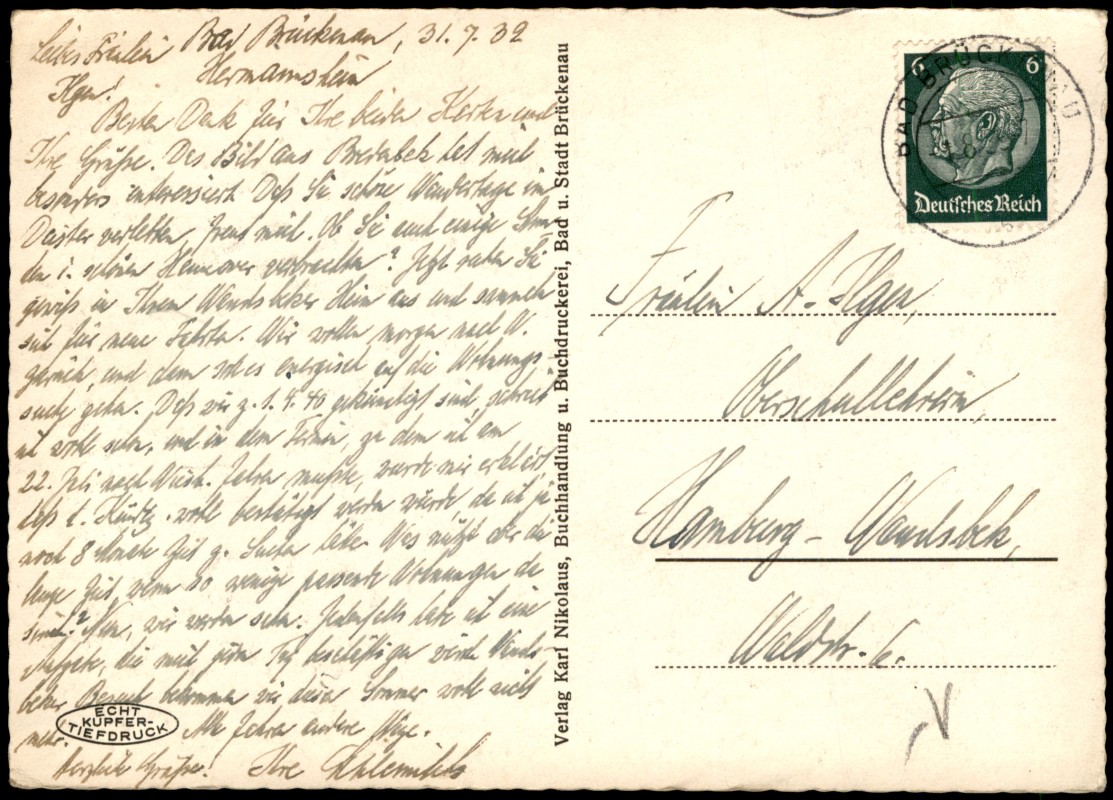 Bad Brückenau, 31.7.39
Liebes Fräulein Hermannsheim
Ilgen!
Besten Dank für Ihre beiden Karten und
Ihre Grüße. Das Bild aus Bredenbek hat mich
besonders interessiert. Daß Sie schöne Wandertage im
Deister verlebten, freut mich. Ob Sie auch einige Stun
den i. schönen Hannover verbrachten? Jetzt ruhen Sie
gewiß in Ihrem Wandsbeker Heim aus und sammeln
für neue Fahrten. Wir wollen morgen nach W.
zurück, und dann soll es energisch auf die Wohnungs-
suche gehen. Daß wir z. 1.4.40 gekündigt sind, schrieb
ich wohl schon, und in dem Termin, zu dem ich am
22. Juli nach Wandsb. fahren mußte, wurde mir erklärt,
daß d. Künd. wohl bestätigt werden würde, da ich ja
noch 8 Monate Zeit z. Suchen hätte. Was nützt aber die
lange Zeit, wenn so wenige passende Wohnungen da
sind? Nun, wir werden sehen. Jedenfalls habe ich eine
Aufgabe, die mich jeden Tag beschäftigen wird. Wands-
beker Besuch bekommen wir diesen Sommer wohl nicht
mehr. Alle fahren andere Wege.
Herzliche Grüße! Ihre
ECHT
KUPFER-
TIEFDRUCK
Verlag Karl Nikolaus, Buchhandlung u. Buchdruckerei, Bad u. Stadt Brückenau
BAD BRÜCKENAU
6 6
Deutsches Reich
Fräulein A. Ilgen,
Oberschullehrerin,
Hamburg - Wandsbek,
Waldstr. 6.